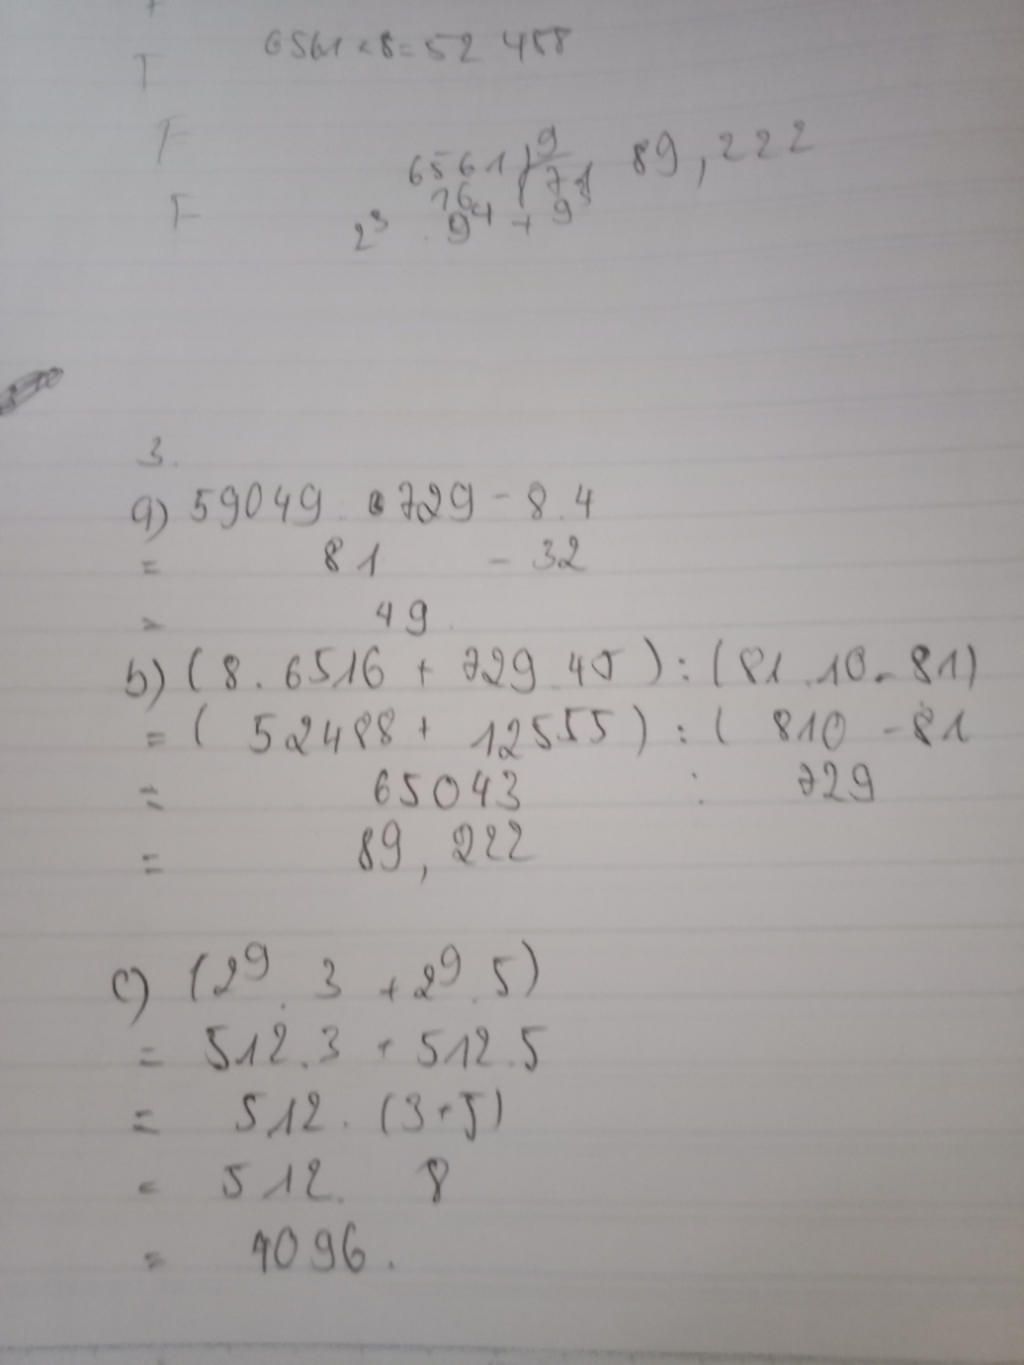 T
6561 × 8 = 52 488
F
6561 9 89,222
16 7
F
2³ . 9⁴ + 9³
3.
a) 59049 . 729 - 8.4
= 81 - 32
= 49
b) (8. 6516 + 729.45) : (81.10 - 81)
= ( 52488 + 12555 ) : ( 810 - 81
= 65043 : 729
= 89, 222
c) (2⁹. 3 + 2⁹. 5)
= 512.3 + 512.5
= 512. (3+5)
= 512. 8
= 4096.